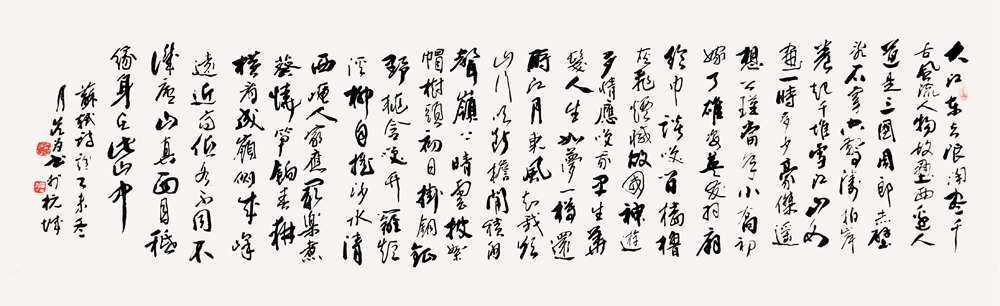 大江東去浪淘盡千
古風流人物故壘西邊人
道是三國周郎赤壁
亂石穿空驚濤拍岸
卷起千堆雪江山如
畫一時多少豪傑遥
想公瑾當年小喬初
嫁了雄姿英發羽扇
綸巾談笑间樯櫓
灰飛煙滅故國神遊
多情應笑我早生華
髮人生如夢一樽還
酹江月東風知我欲
山行吹斷檐間積雨
聲嶺上晴雲披絮
帽樹頭初日掛銅鉦
野桃含笑竹籬短
溪柳自摇沙水清
西崦人家應最樂煮
葵燒筍餉春耕
横看成嶺側成峰
遠近高低各不同不
識廬山真面目秪
緣身在此山中
蘇軾詩詞乙未冬
月書於杭城